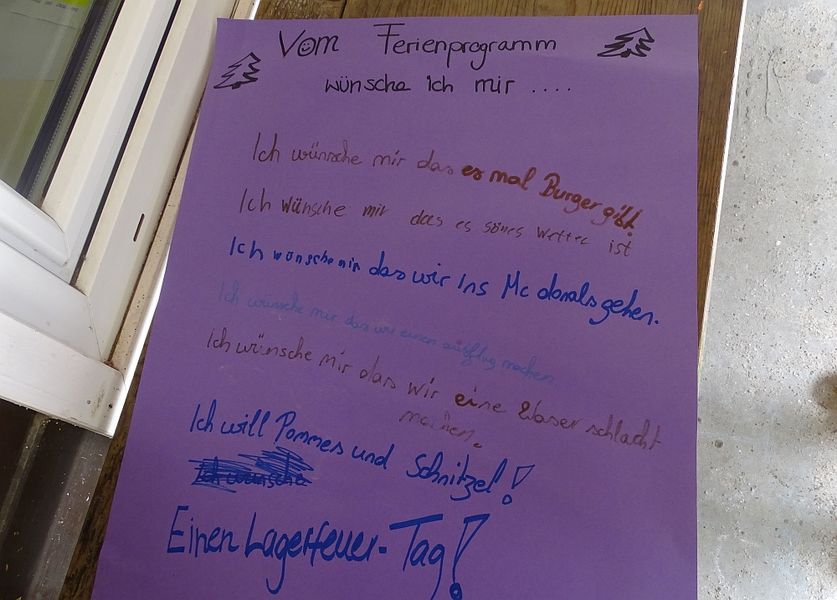 Vom Ferienprogramm
wünsche ich mir ....
Ich wünsche mir das es mal Burger gibt!
Ich wünsche mir das es sönes Wetter ist
Ich wünsche mir das wir ins Mc donals gehen.
Ich wünsche mir das wir einen ausflug machen
Ich wünsche mir das wir eine Waser schlacht
machen.
Ich will Pommes und Schnitzel!
Ich wünsche
Einen Lagerfeuer-Tag!